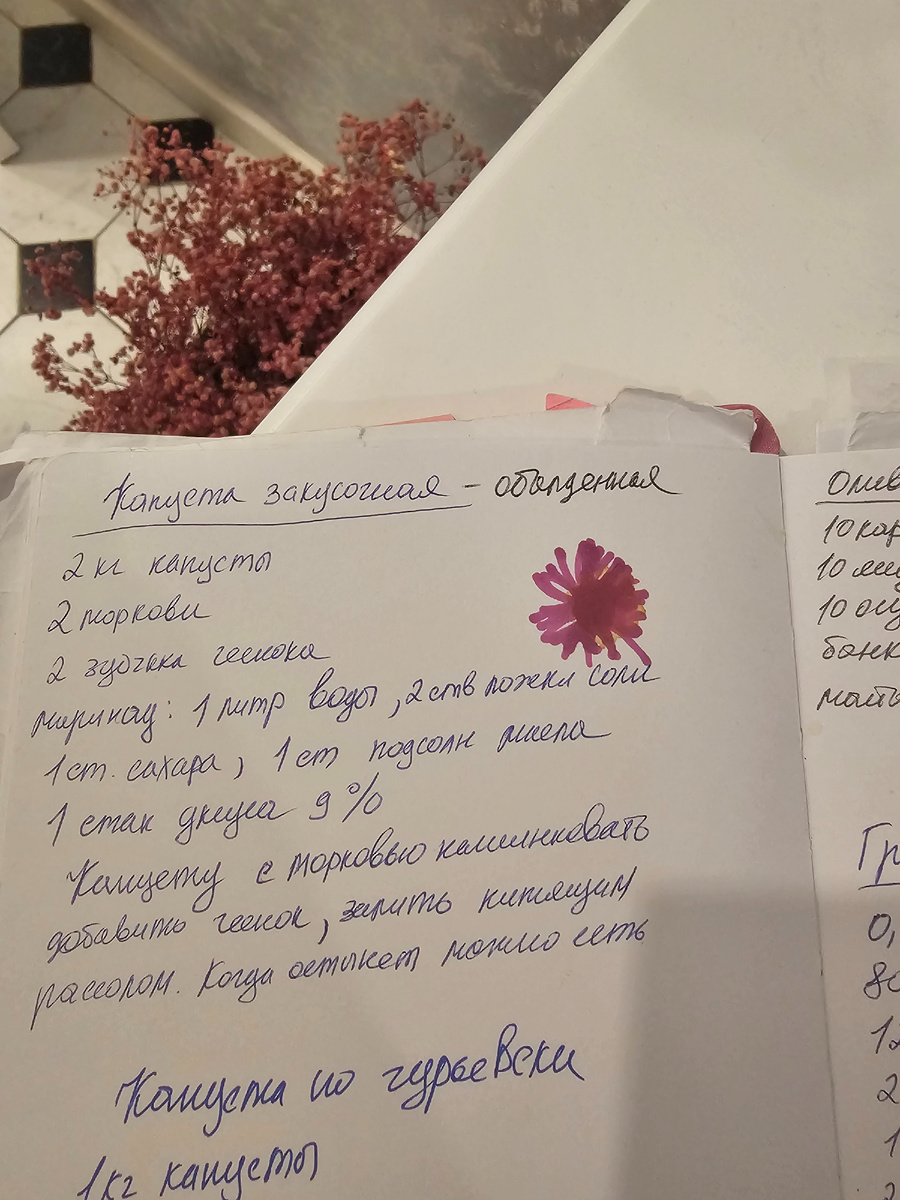 Капуста закусочная - обалденная
2 кг капусты
2 моркови
2 зубчика чеснока
маринад: 1 литр воды, 2 ств ложки соли
1 ст. сахара, 1 ст подсолн масла
1 стак уксуса 9%
Капусту с морковью нашинковать
добавить чеснок, залить кипящим
рассолом. Когда остынет можно есть
Капуста по гурьевски
1 кг капусты
Олив
10 кар
10
10 огу
банк
Гр
0,
80
12
2
1
2